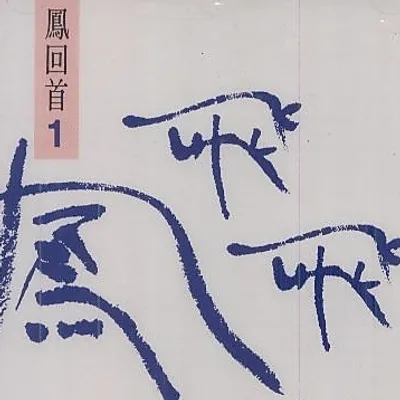 鳳回首
1
鳳飛飛